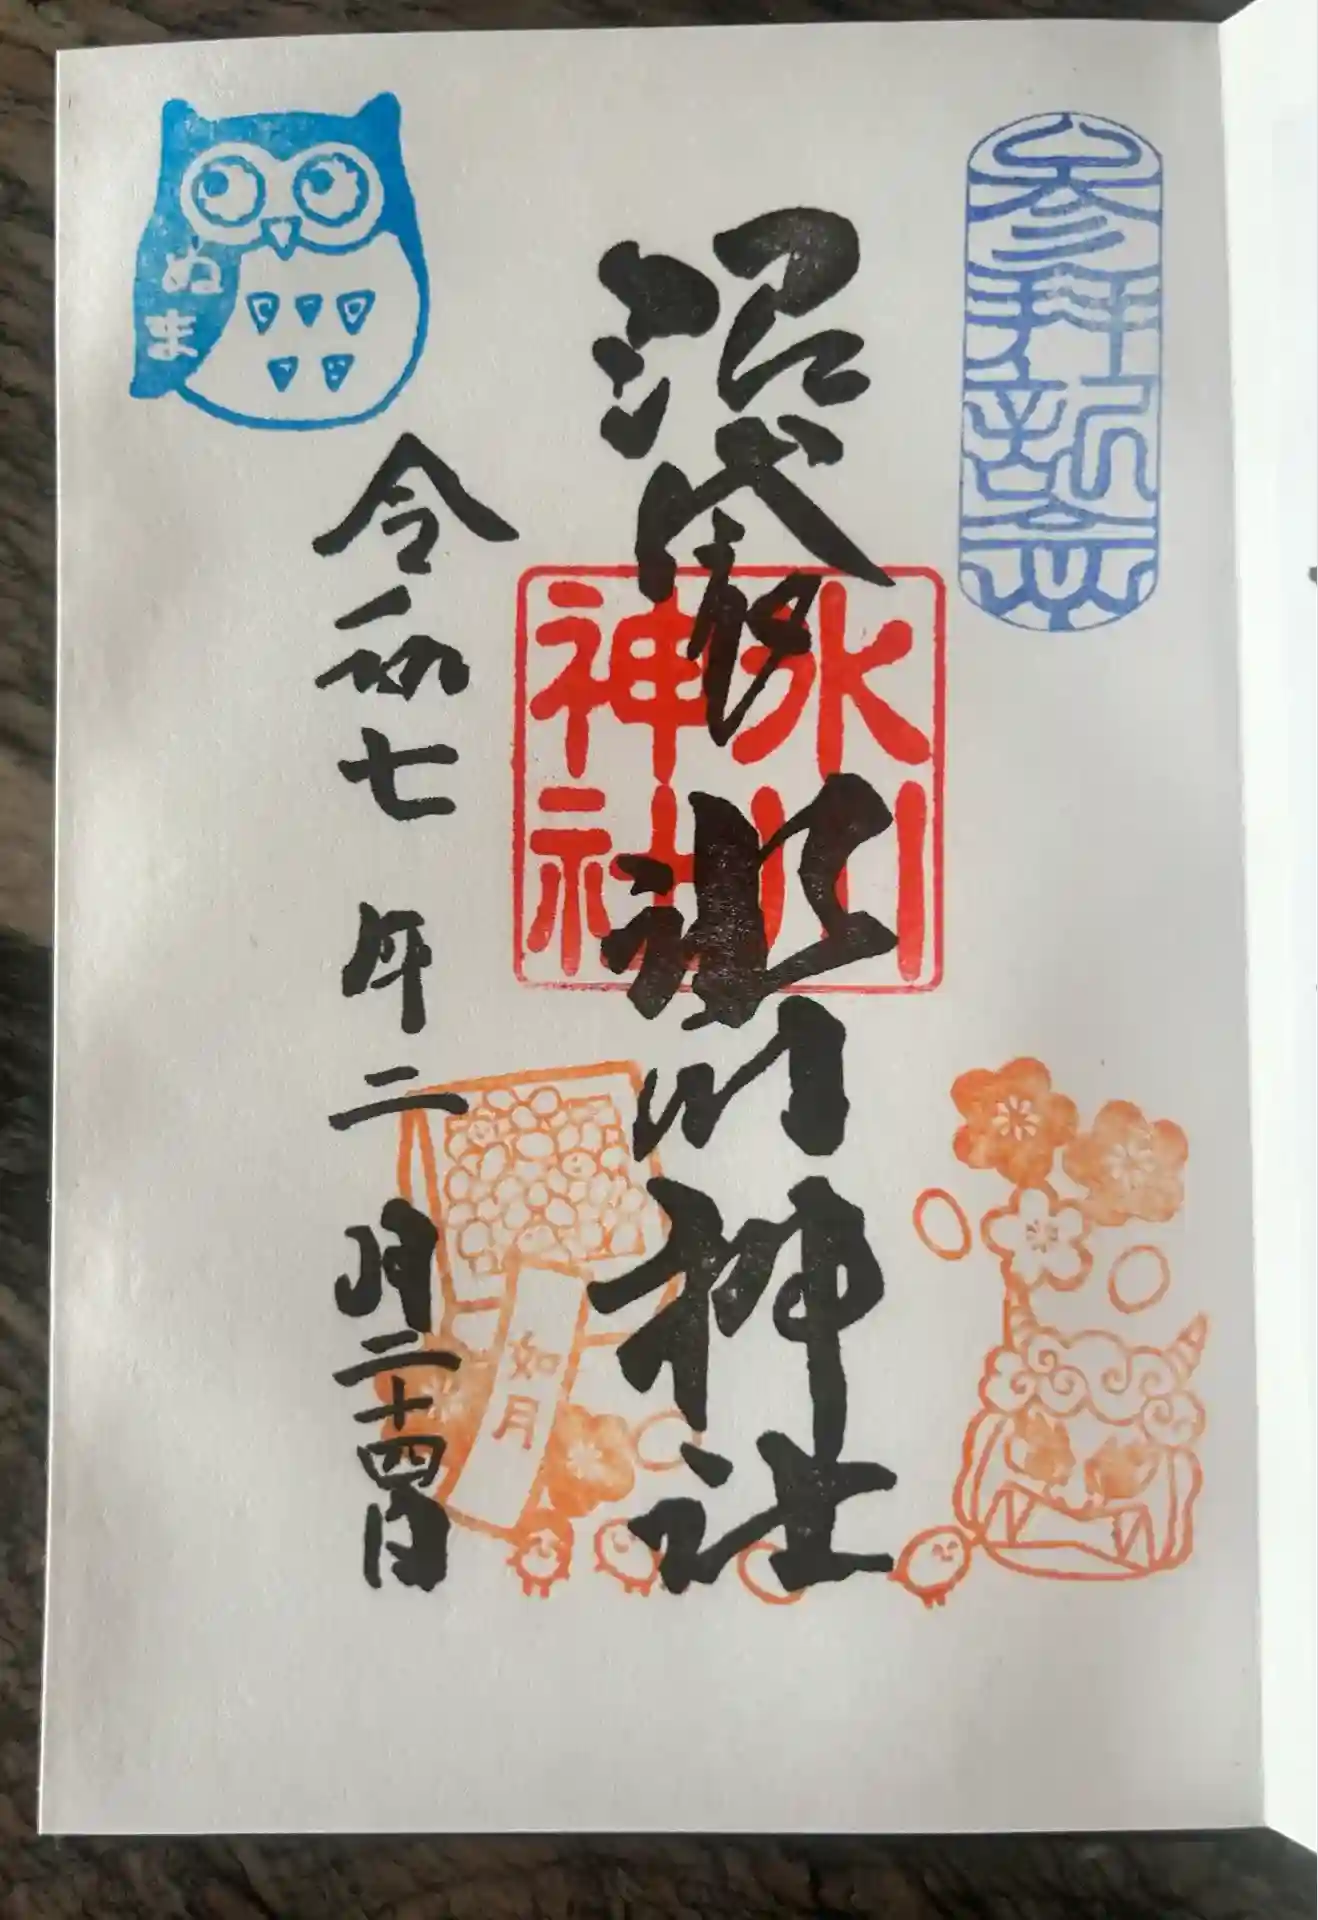 参拝記念
沼袋氷川神社
氷川
神社
令和七年二月二十四日
ぬま
如月